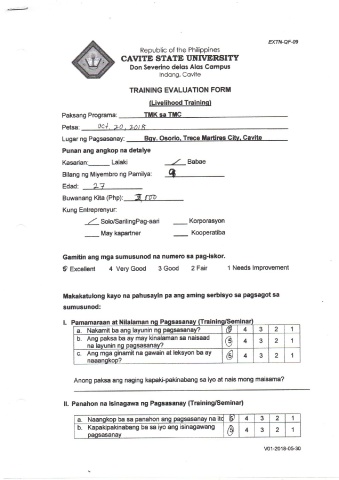 EXTN-QF-09
Republic of the Philippines
CAVITE STATE UNIVERSITY
Don Severino delas Alas Campus
Indang, Cavite
TRAINING EVALUATION FORM
(Livelihood Training)
Paksang Programa: TMK sa TMC
Petsa: Oct. 20, 2018
Lugar ng Pagsasanay: Bgy. Osorio, Trece Martires City, Cavite
Punan ang angkop na detalye
Kasarian: Lalaki Babae
Bilang ng Miyembro ng Pamilya: 9
Edad: 27
Buwanang Kita (Php):
Kung Entreprenyur:
Solo/Sariling Pag-aari Korporasyon
May kapartner Kooperatiba
Gamitin ang mga sumusunod na numero sa pag-iskor.
5 Excellent 4 Very Good 3 Good 2 Fair 1 Needs Improvement
Makakatulong kayo na pahusayin pa ang aming serbisyo sa pagsagot sa
sumusunod:
I. Pamamaraan at Nilalaman ng Pagsasanay (Training/Seminar)
a. Nakamit ba ang layunin ng pagsasanay? 5 4 3 2 1
b. Ang paksa ba ay may kinalaman sa naisaad na layunin ng pagsasanay? 5 4 3 2 1
c. Ang mga ginamit na gawain at leksyon ba ay naaangkop? 5 4 3 2 1
Anong paksa ang naging kapaki-pakinabang sa iyo at nais mong maisama?
II. Panahon na Isinagawa ng Pagsasanay (Training/Seminar)
a. Naangkop ba sa panahon ang pagsasanay na ito 5 4 3 2 1
b. Kapakipakinabang ba sa iyo ang isinagawang pagsasanay 5 4 3 2 1
V01-2018-05-30